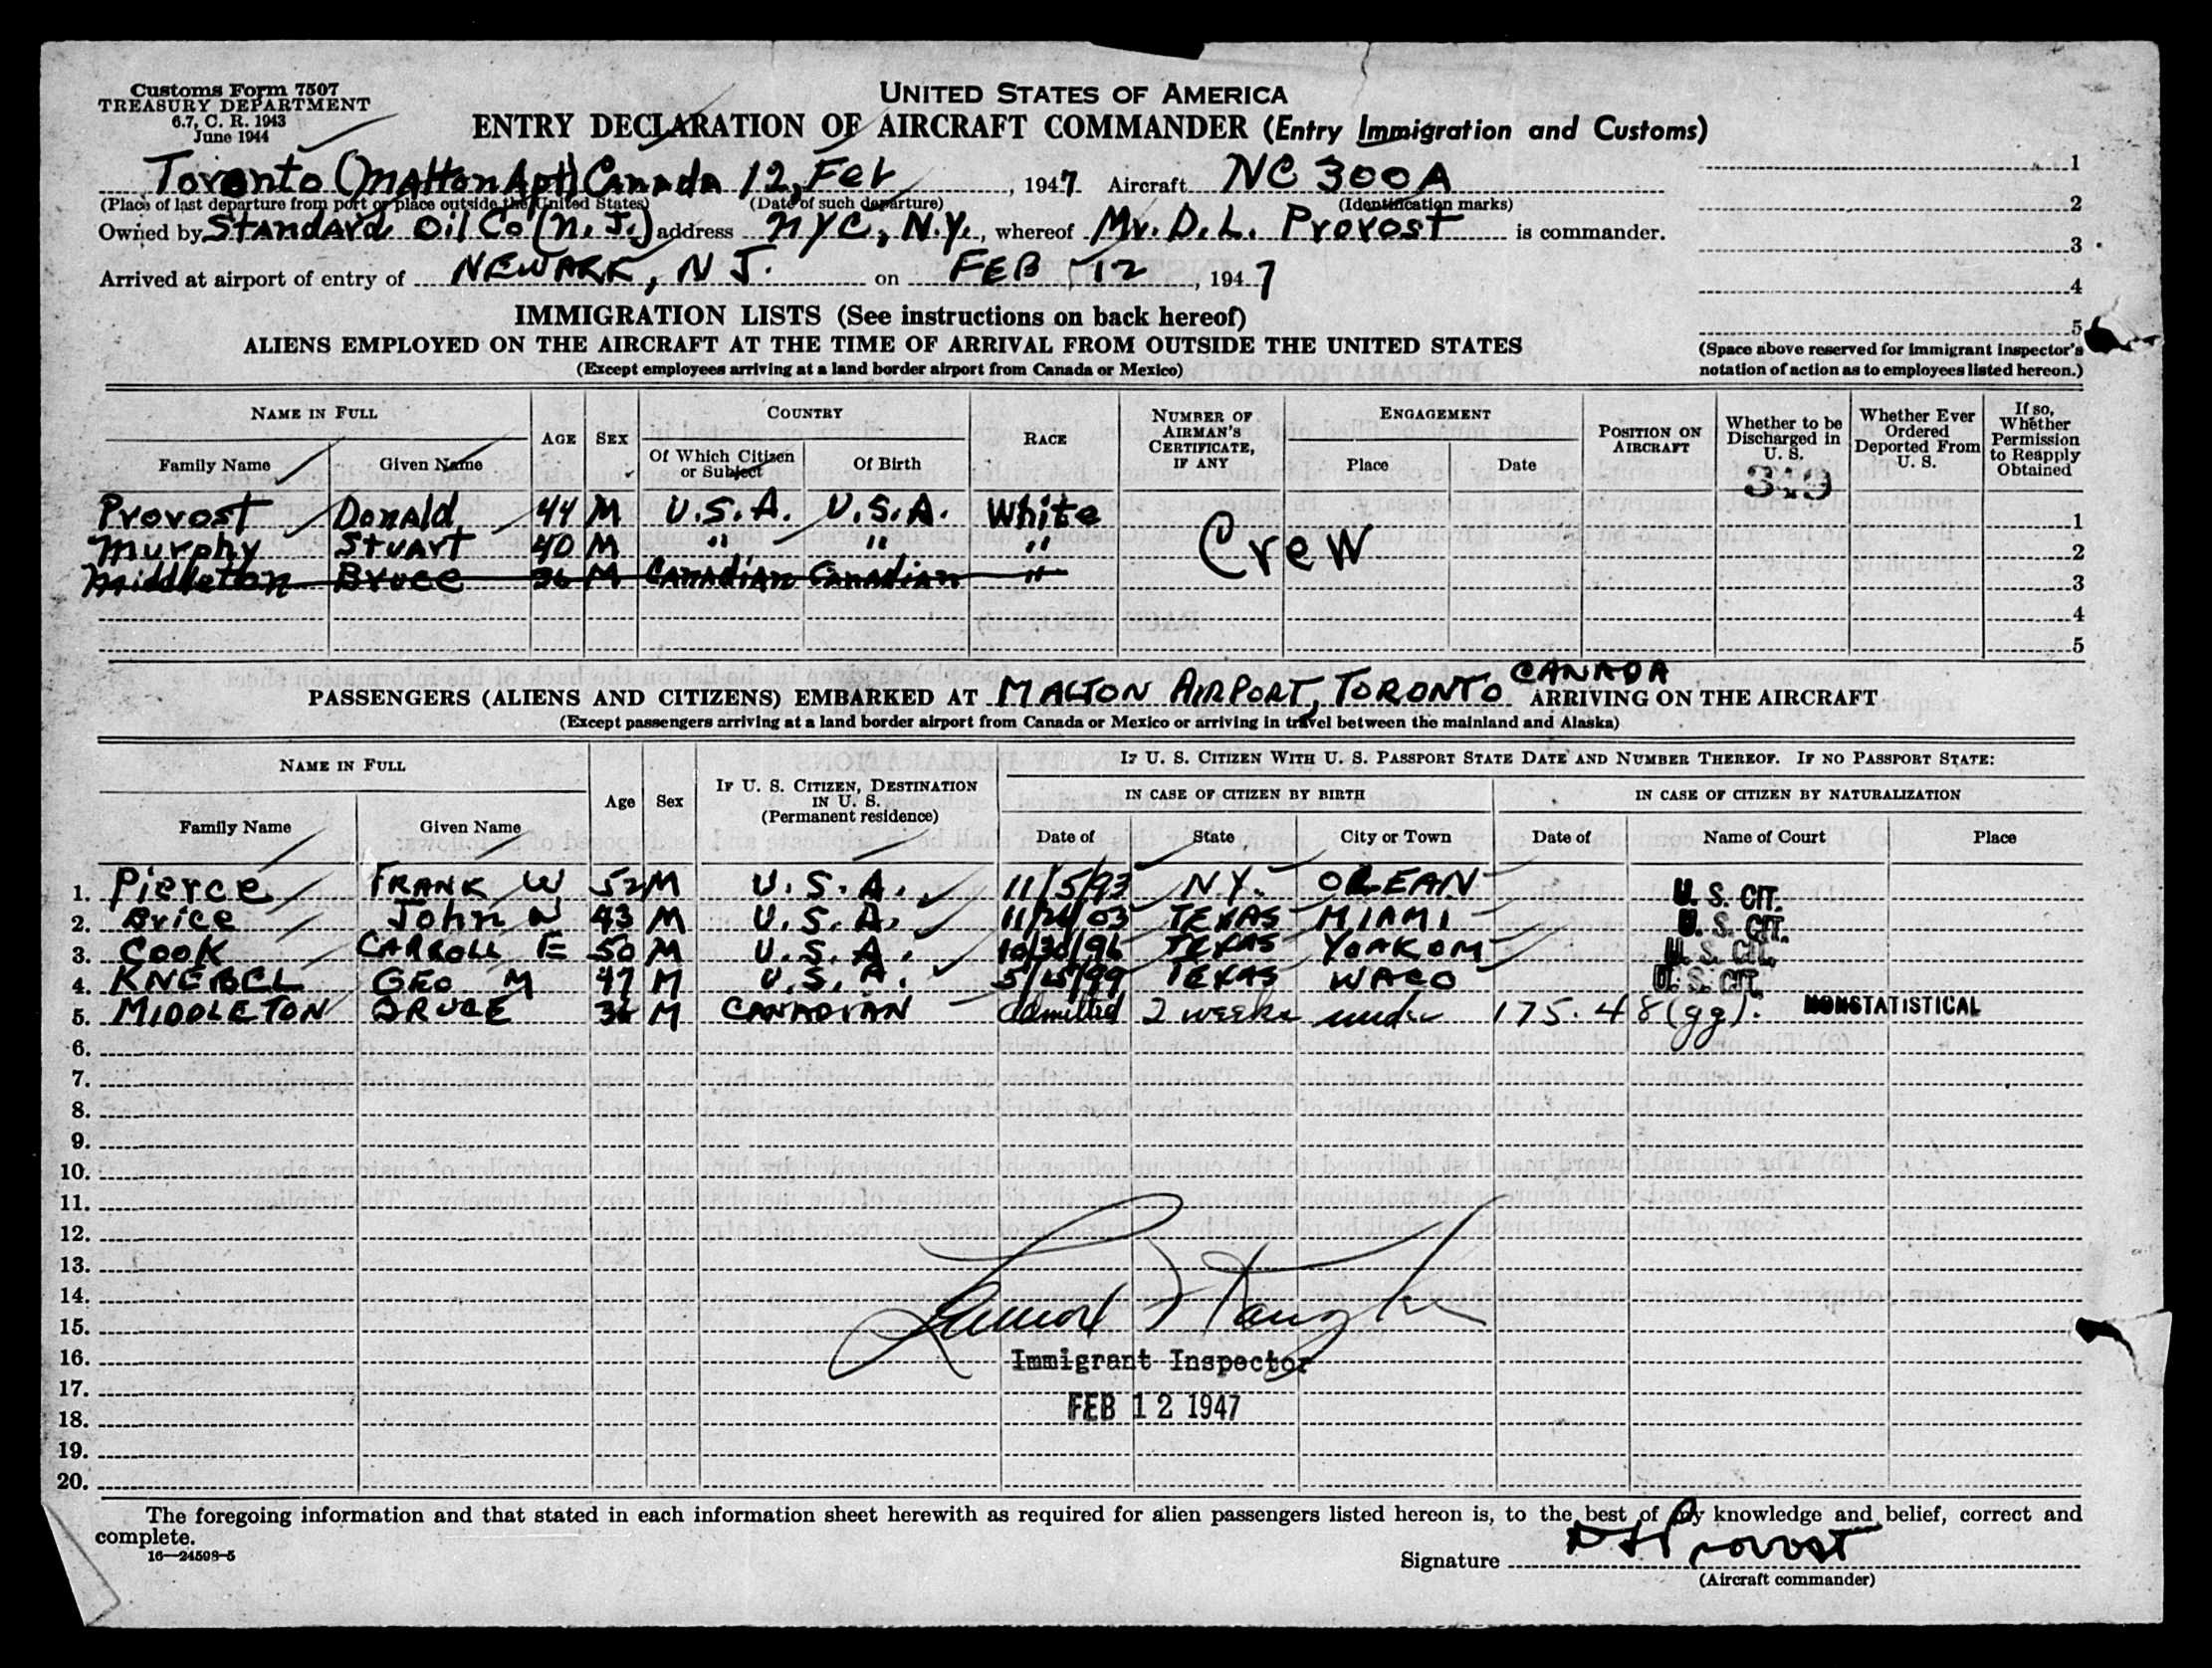 Customs Form 7507
TREASURY DEPARTMENT
6.7, C. R. 1943
June 1944
UNITED STATES OF AMERICA
ENTRY DECLARATION OF AIRCRAFT COMMANDER (Entry Immigration and Customs)
Toronto (Malton Apt) Canada 12, Feb, 1947 Aircraft NC 300A
(Place of last departure from port or place outside the United States) (Date of such departure) (Identification marks)
Owned by Standard Oil Co (N.J.) address NYC, N.Y., whereof Mr. D. L. Provost is commander.
Arrived at airport of entry of NEWARK, N J. on FEB 12, 1947
1
2
3
4
5
(Space above reserved for immigrant inspector's
notation of action as to employees listed hereon.)
IMMIGRATION LISTS (See instructions on back hereof)
ALIENS EMPLOYED ON THE AIRCRAFT AT THE TIME OF ARRIVAL FROM OUTSIDE THE UNITED STATES
(Except employees arriving at a land border airport from Canada or Mexico)
NAME IN FULL AGE SEX COUNTRY RACE NUMBER OF AIRMAN'S CERTIFICATE, IF ANY ENGAGEMENT POSITION ON AIRCRAFT Whether to be Discharged in U. S. Whether Ever Ordered Deported From U. S. If so, Whether Permission to Reapply Obtained
Family Name Given Name Of Which Citizen or Subject Of Birth Place Date
349
Provost Donald 44 M U.S.A. U.S.A. White 1
Murphy Stuart 40 M " " " 2
Crew
Middleton Bruce 36 M Canadian Canadian " 3
4
5
CANADA
PASSENGERS (ALIENS AND CITIZENS) EMBARKED AT MALTON AIRPORT, TORONTO ARRIVING ON THE AIRCRAFT
(Except passengers arriving at a land border airport from Canada or Mexico or arriving in travel between the mainland and Alaska)
NAME IN FULL Age Sex IF U. S. CITIZEN, DESTINATION IN U. S. (Permanent residence) IF U. S. CITIZEN WITH U. S. PASSPORT STATE DATE AND NUMBER THEREOF. IF NO PASSPORT STATE:
IN CASE OF CITIZEN BY BIRTH IN CASE OF CITIZEN BY NATURALIZATION
Family Name Given Name Date of State City or Town Date of Name of Court Place
1. Pierce FRANK W 52 M U.S.A. 11/5/93 N.Y. OLEAN U. S. CIT.
2. Brice John W 43 M U.S.A. 11/26/03 TEXAS MIAMI U. S. CIT.
3. COOK CARROLL E 50 M U.S.A. 10/30/96 TEXAS YOAKOM U. S. CIT.
4. KNEBEL GEO M 47 M U.S.A. 5/15/99 TEXAS WACO U. S. CIT.
5. MIDDLETON BRUCE 36 M CANADIAN admitted 2 weeks under 175.48(gg). NONSTATISTICAL
6.
7.
8.
9.
10.
11.
12.
13.
14.
15.
16.
Immigrant Inspector
17.
FEB 12 1947
18.
19.
20.
The foregoing information and that stated in each information sheet herewith as required for alien passengers listed hereon is, to the best of my knowledge and belief, correct and
complete.
16—24598-5
Signature D L Provost
(Aircraft commander)